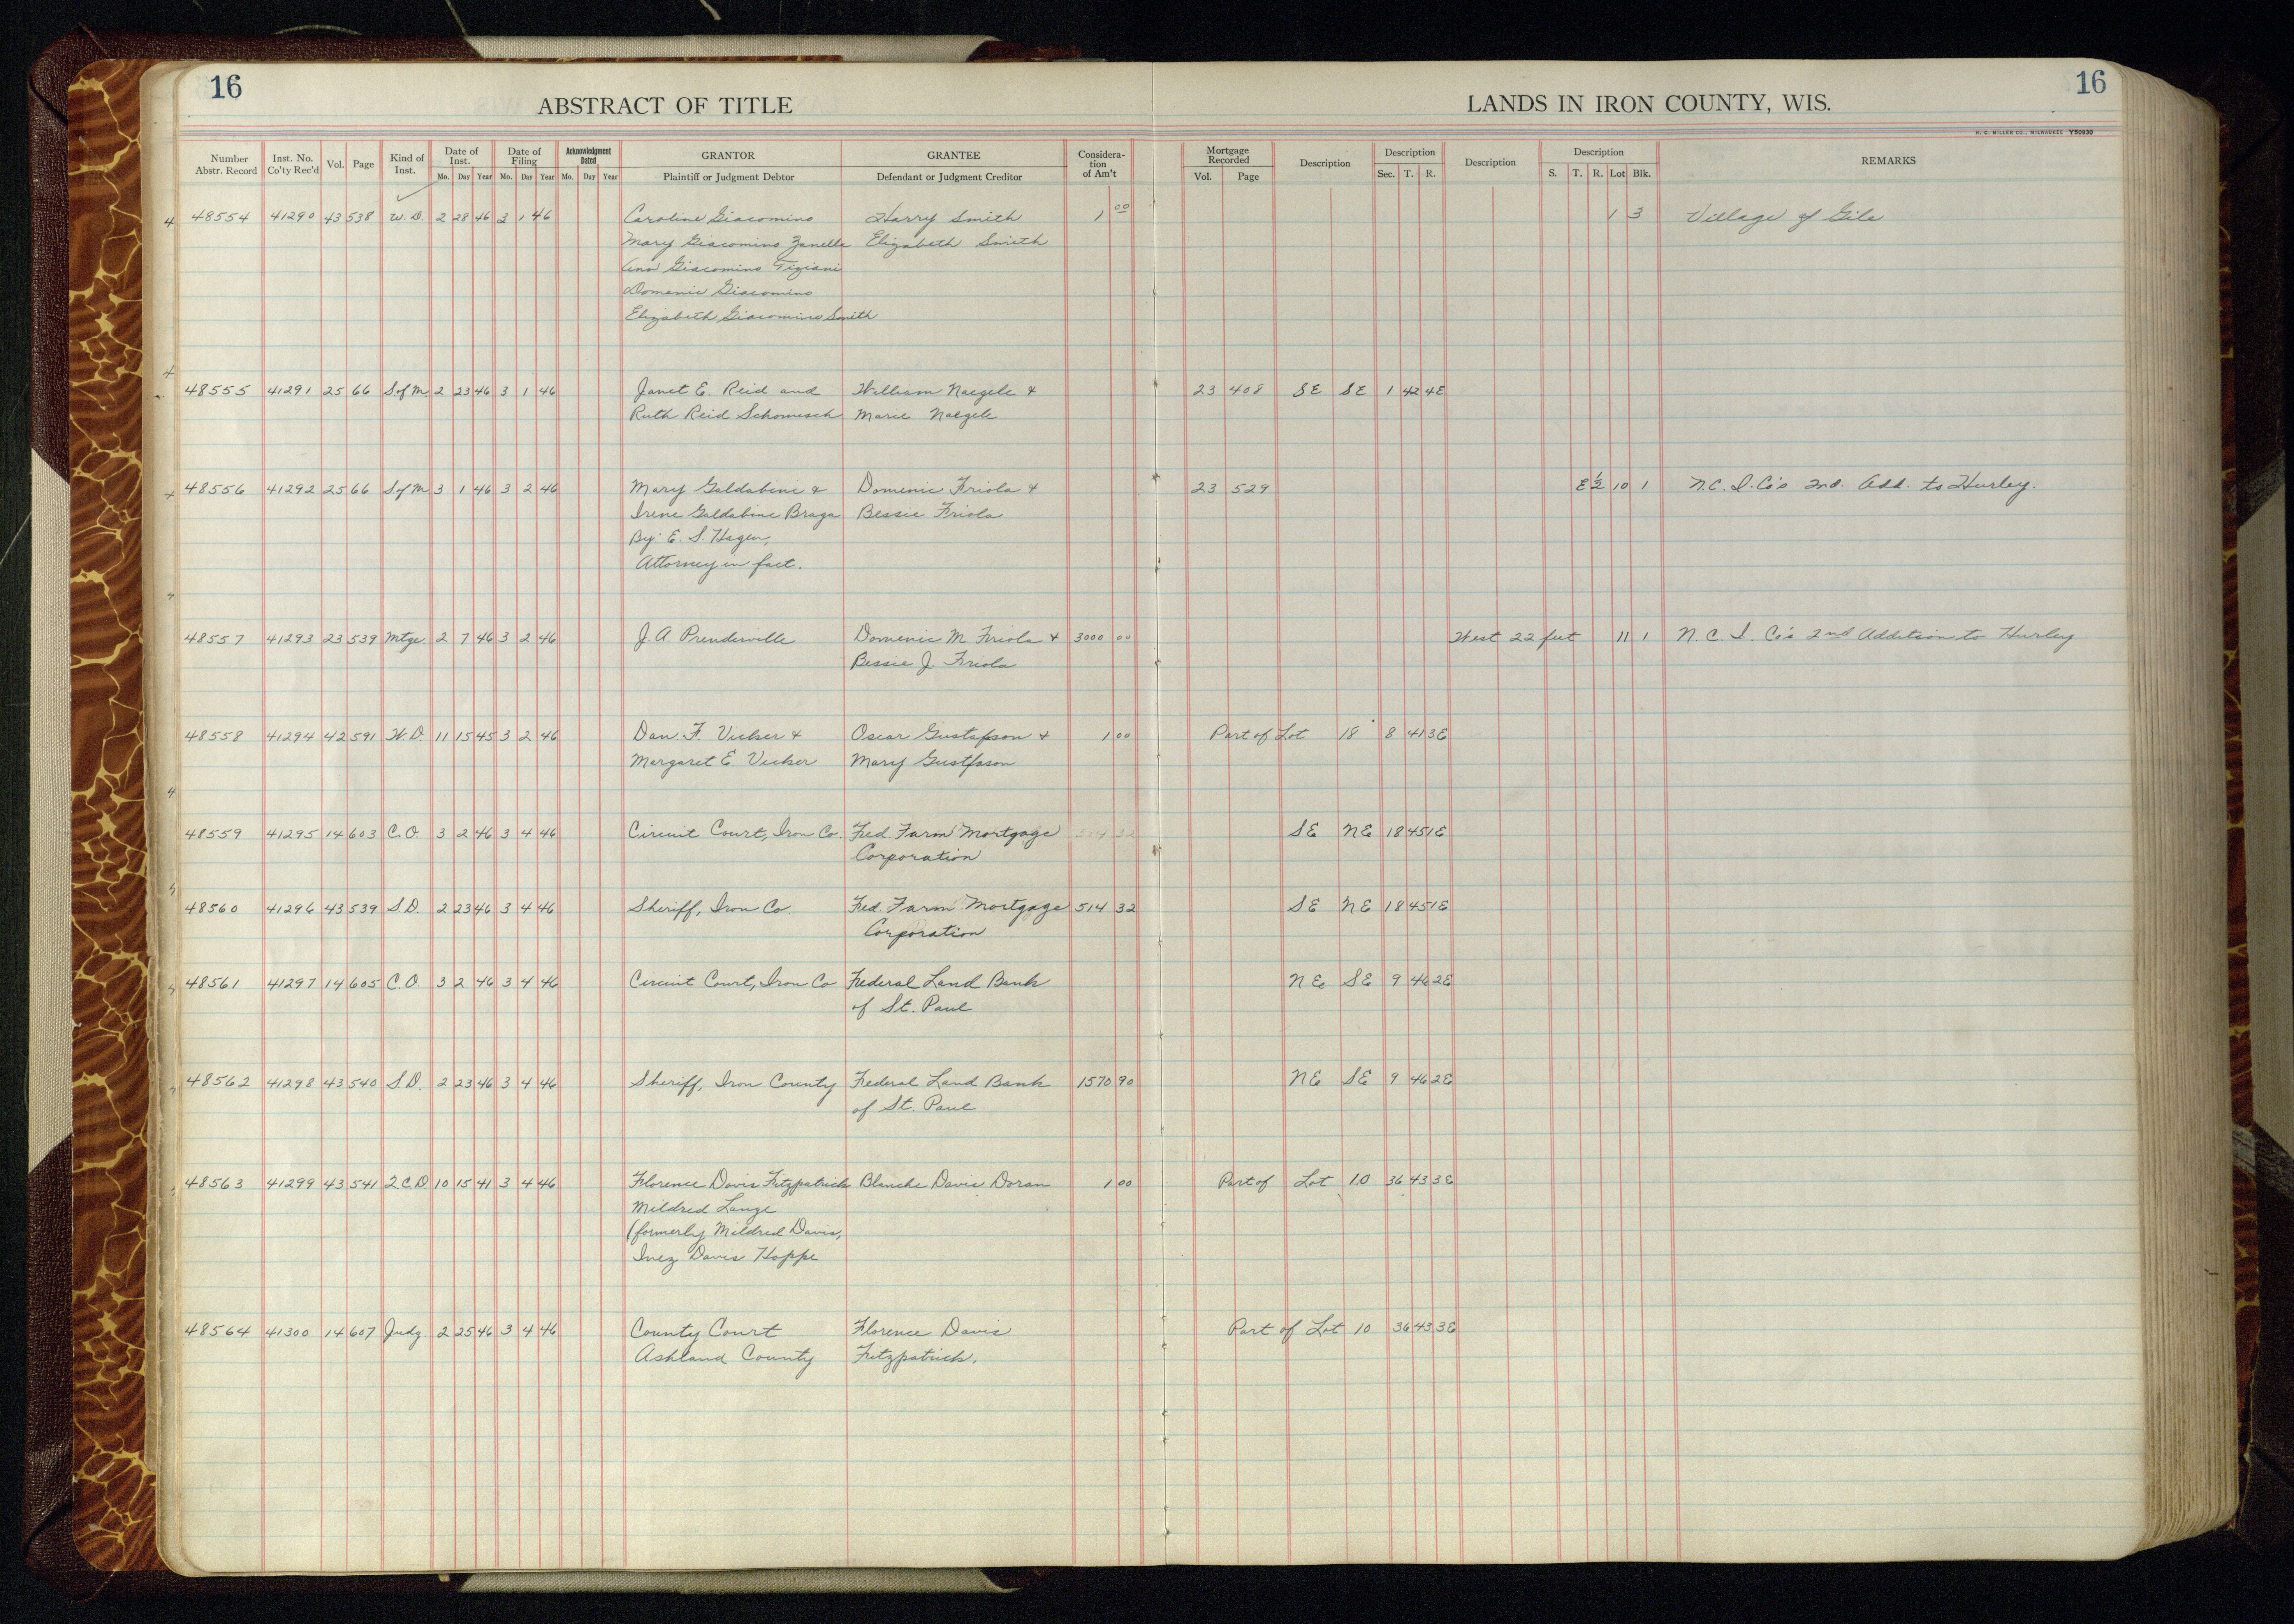 16
16
ABSTRACT OF TITLE
LANDS IN IRON COUNTY, WIS.
H. C. MILLER CO., MILWAUKEE Y50930
Number Abstr. Record Inst. No. Co'ty Rec'd Vol. Page Kind of Inst. Date of Inst. Mo. Day Year Date of Filing Mo. Day Year Acknowledgment Dated Mo. Day Year GRANTOR Plaintiff or Judgment Debtor GRANTEE Defendant or Judgment Creditor Considera-tion of Am't Mortgage Recorded Vol. Page Description Description Sec. T. R. Description Description S. T. R. Lot Blk. REMARKS
48554 41290 43 538 W.D. 2 28 46 3 1 46 Caroline Giacomino Harry Smith 1 00 1 3 Village of Gile
Mary Giacomino Zanella Elizabeth Smith
Ana Giacomino Tiziani
Domenic Giacomino
Elizabeth Giacomino Smith
48555 41291 25 66 S.of M. 2 23 46 3 1 46 Janet E. Reid and William Naegele & 23 408 SE SE 1 42 4E
Ruth Reid Schomisch Marie Naegele
48556 41292 25 66 S.of M 3 1 46 3 2 46 Mary Galdabini & Domenic Friola & 23 529 E ½ 10 1 N.C.I.Co's 2nd. Add. to Hurley.
Irene Galdabini Braga Bessie Friola
By: E. S. Hagen,
Attorney in fact.
48557 41293 23 539 Mtge. 2 7 46 3 2 46 J. A Prenderville Domenic M. Friola & 3000 00 West 22 feet 11 1 N. C. I. Co's 2nd Addition to Hurley
Bessie J. Friola
48558 41294 42 591 W.D 11 15 45 3 2 46 Dan. F. Vicker & Oscar Gustafson & 1 00 Part of Lot 18 8 41 3E
Margaret E. Vicker Mary Gustfsson
48559 41295 14 603 C.O. 3 2 46 3 4 46 Circuit Court, Iron Co. Fed. Farm Mortgage 514 32 SE NE 18 45 1E
Corporation
48560 41296 43 539 S.D. 2 23 46 3 4 46 Sheriff, Iron Co. Fed. Farm Mortgage 514 32 SE NE 18 45 1E
Corporation
48561 41297 14 605 C.O. 3 2 46 3 4 46 Circuit Court, Iron Co Federal Land Bank NE SE 9 46 2E
of St. Paul
48562 41298 43 540 S.D. 2 23 46 3 4 46 Sheriff, Iron County Federal Land Bank 1570 90 NE SE 9 46 2E
of St. Paul
48563 41299 43 541 Q.C.D. 10 15 41 3 4 46 Florence Davis Fitzpatrick Blanche Davis Doran 1 00 Part of Lot 10 36 43 3E
Mildred Lange
(formerly Mildred Davis,
Inez Davis Hoppe
48564 41300 14 607 Judg. 2 25 46 3 4 46 County Court Florence Davis Part of Lot 10 36 43 3E
Ashland County Fitzpatrick.